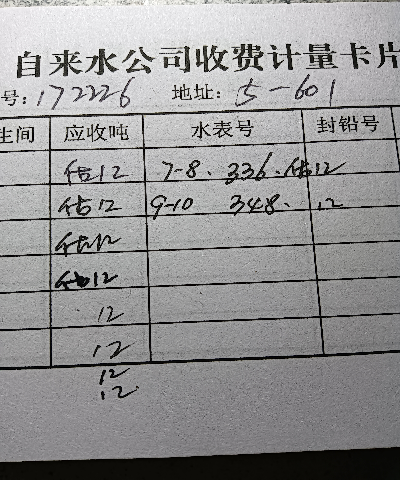 自来水公司收费计量卡片
号:172226 地址:5-601
生间 应收吨 水表号 封铅号
估12 7-8. 336. 估12
估12 9-10 348. 12
估12
估12
12
12
12
12